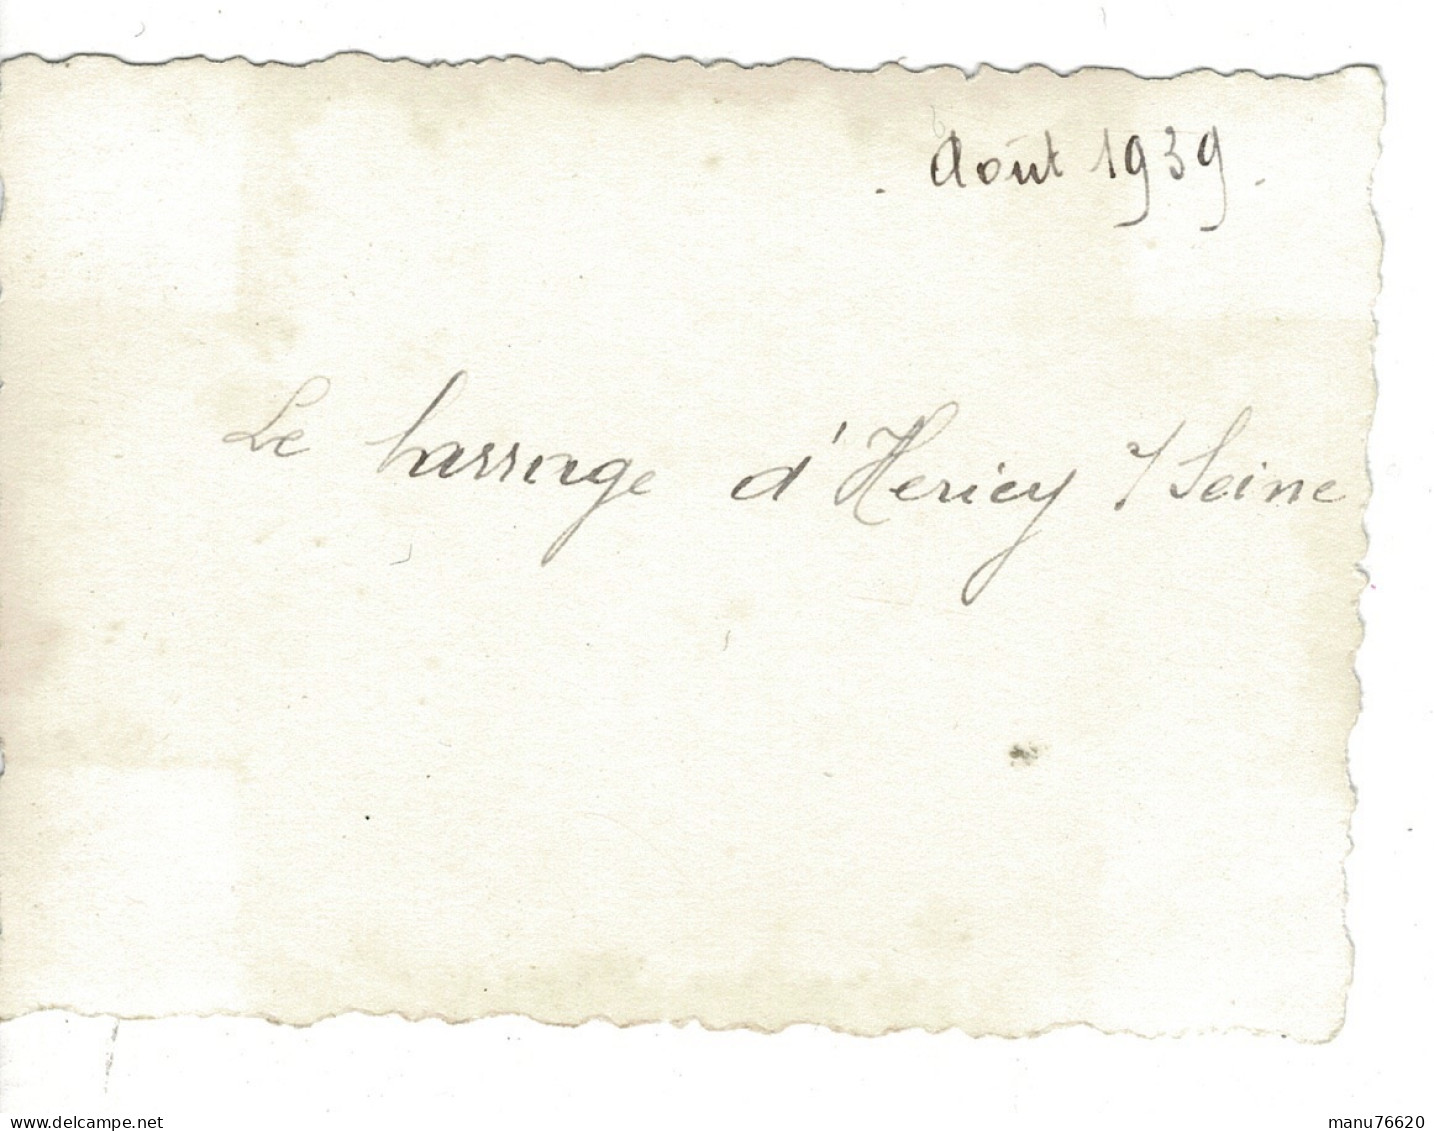 Août 1939.
Le barrage d'Hericy s/Seine
www.delcampe.net
manu76620